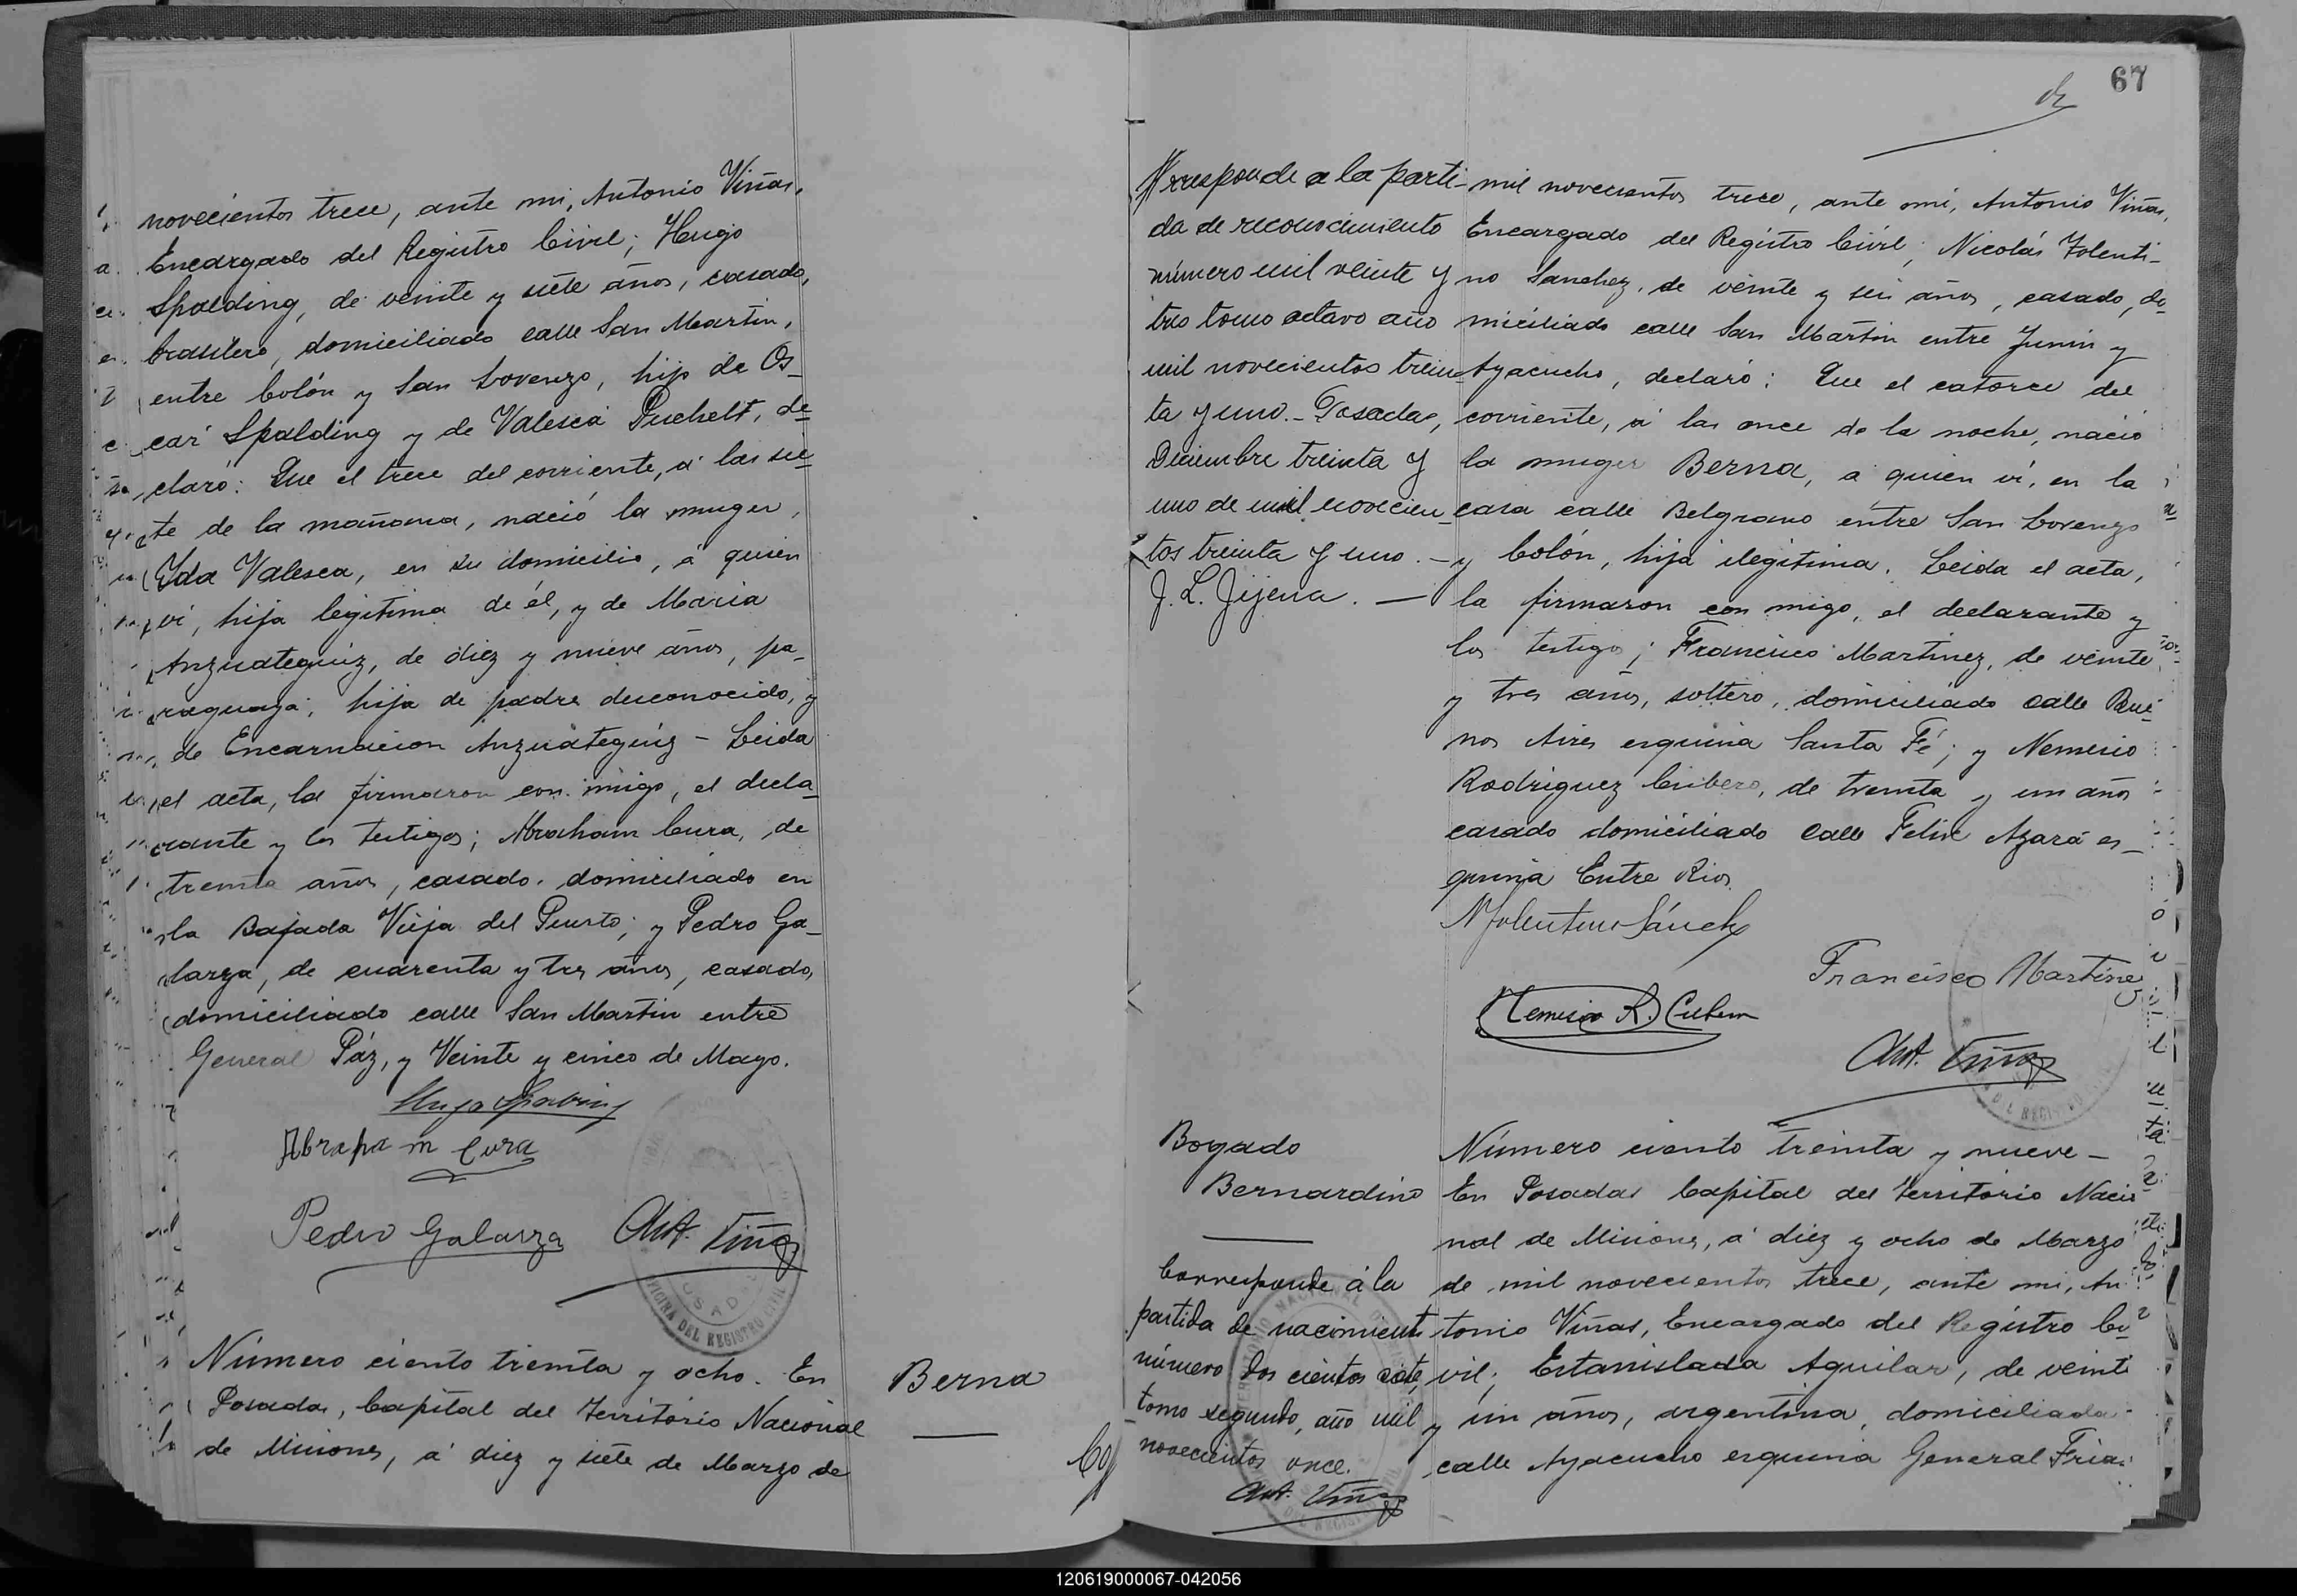 novecientos trece, ante mi, Antonio Viñas,
Encargado del Registro Civil; Hugo
Spalding, de veinte y siete años, casado,
brasilero, domiciliado calle San Martin,
entre Colón y San Lorenzo, hijo de Os-
car Spalding y de Valesca Puchelt, de-
claró: Que el trece del corriente, á las sie-
te de la mañana, nació la muger,
Ida Valesca, en su domicilio, á quien
vi, hija legitima de él, y de Maria
Anzuateguiz, de diez y nueve años, pa-
raguaya, hija de padre desconocido, y
de Encarnacion Anzuateguiz - Leida
el acta, la firmaron con migo, el decla-
rante y los testigos; Abraham Cura, de
treinta años, casado, domiciliado en
la Bajada Vieja del Puerto; y Pedro Ga-
larza, de cuarenta y tres años, casado,
domiciliado calle San Martin entre
General Páz, y Veinte y cinco de Mayo.
Hugo Spalding
Abraham Cura
Pedro Galarza Ant. Viñas
Número ciento treinta y ocho. En
Posadas, Capital del Territorio Nacional
de Misiones, á diez y siete de Marzo de
Berna
67
Corresponde a la parti-
da de reconocimiento
número mil veinte y
tres tomo octavo año
mil novecientos trein-
ta y uno. - Posadas,
Diciembre treinta y
uno de mil novecien-
tos treinta y uno. -
J. L. Jijena. -
mil novecientos trece, ante mi, Antonio Viñas,
Encargado del Registro Civil; Nicolás Tolenti-
no Sanchez, de veinte y seis años, casado, do-
miciliado calle San Martin entre Junin y
Ayacucho, declaró: Que el catorce del
corriente, á las once de la noche, nació
la muger Berna, a quien vi, en la
casa calle Belgrano entre San Lorenzo
y Colón, hija ilegitima. Leida el acta,
la firmaron con migo, el declarante y
los testigos; Francisco Martinez, de veinte
y tres años, soltero, domiciliado calle Bue-
nos Aires esquina Santa Fé; y Nemesio
Rodriguez Cubero, de treinta y un años
casado domiciliado calle Felix Azara es-
quina Entre Rios
N Tolentino Sánchez
Francisco Martinez
Nemesio R. Cubero
Ant. Viñas
Bogado
Bernardino
Corresponde á la
partida de nacimiento
número dos cientos siete,
tomo segundo, año mil
novecientos once.
Ant. Viñas
Número ciento treinta y nueve -
En Posadas Capital del Territorio Nacio
nal de Misiones, á diez y ocho de Marzo
de mil novecientos trece, ante mi, An
tonio Viñas, Encargado del Registro Ci-
vil; Estanislada Aguilar, de veinte
y un años, argentina, domiciliada
calle Ayacucho esquina General Frias
120619000067-042056